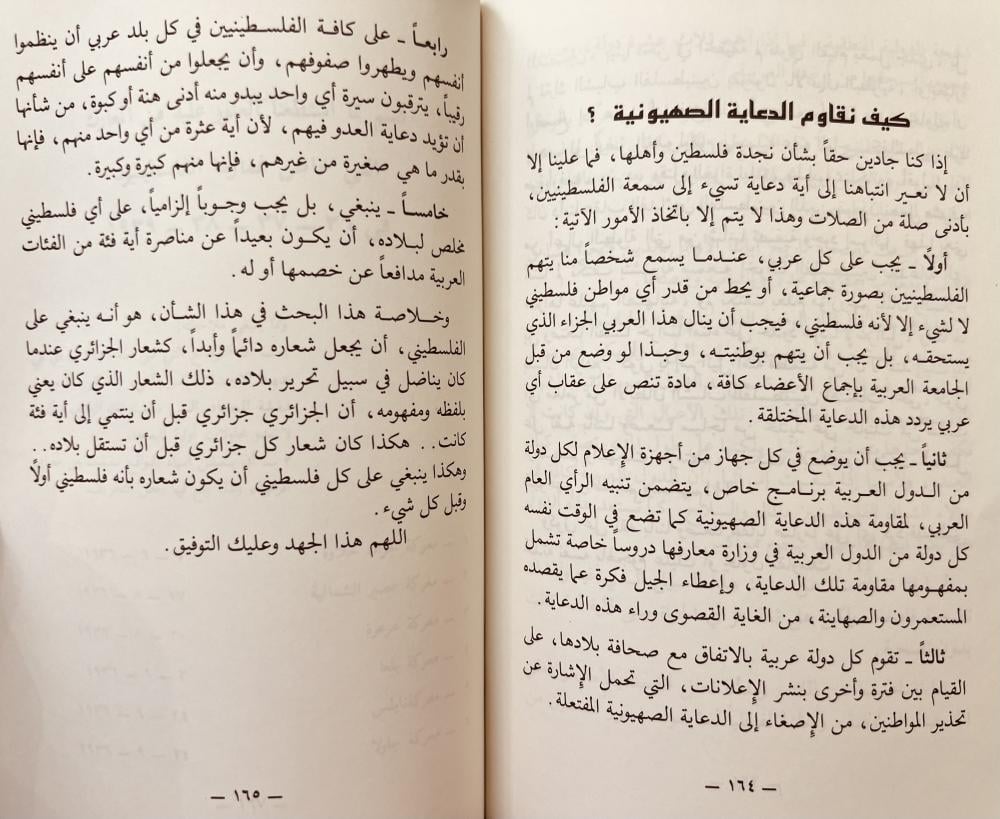 كيف نقاوم الدعاية الصهيونية ؟
إذا كنا جادين حقاً بشأن نجدة فلسطين وأهلها، فما علينا إلا
أن لا نعير انتباهنا إلى أية دعاية تسيء إلى سمعة الفلسطينيين،
بأدنى صلة من الصلات وهذا لا يتم إلا باتخاذ الأمور الآتية:
أولاً ـ يجب على كل عربي، عندما يسمع شخصاً منا يتهم
الفلسطينيين بصورة جماعية، أو يحط من قدر أي مواطن فلسطيني
لا لشيء إلا لأنه فلسطيني، فيجب أن ينال هذا العربي الجزاء الذي
يستحقه، بل يجب أن يتهم بوطنيته، وحبذا لو وضع من قبل
الجامعة العربية بإجماع الأعضاء كافة، مادة تنص على عقاب أي
عربي يردد هذه الدعاية المختلقة.
ثانياً ـ يجب أن يوضع في كل جهاز من أجهزة الإعلام لكل دولة
من الدول العربية برنامج خاص، يتضمن تنبيه الرأي العام
العربي، لمقاومة هذه الدعاية الصهيونية كما تضع في الوقت نفسه
كل دولة من الدول العربية في وزارة معارفها دروساً خاصة تشمل
بمفهومها مقاومة تلك الدعاية، وإعطاء الجيل فكرة عما يقصده
المستعمرون والصهاينة، من الغاية القصوى وراء هذه الدعاية.
ثالثاً ـ تقوم كل دولة عربية بالاتفاق مع صحافة بلادها، على
القيام بين فترة وأخرى بنشر الإعلانات، التي تحمل الإشارة عن
تحذير المواطنين، من الإصغاء إلى الدعاية الصهيونية المفتعلة.
— ١٦٤ —
رابعاً ـ على كافة الفلسطينيين في كل بلد عربي أن ينظموا
أنفسهم ويطهروا صفوفهم، وأن يجعلوا من أنفسهم على أنفسهم
رقيباً، يترقبون سيرة أي واحد يبدو منه أدنى هنة أو كبوة، من شأنها
أن تؤيد دعاية العدو فيهم، لأن أية عثرة من أي واحد منهم، فإنها
بقدر ما هي صغيرة من غيرهم، فإنها منهم كبيرة وكبيرة.
خامساً ـ ينبغي، بل يجب وجوباً إلزامياً، على أي فلسطيني
مخلص لبلاده، أن يكون بعيداً عن مناصرة أية فئة من الفئات
العربية مدافعاً عن خصمها أو له.
وخلاصة هذا البحث في هذا الشأن، هو أنه ينبغي على
الفلسطيني، أن يجعل شعاره دائماً وأبداً، كشعار الجزائري عندما
كان يناضل في سبيل تحرير بلاده، ذلك الشعار الذي كان يعني
بلفظه ومفهومه، أن الجزائري جزائري قبل أن ينتمي إلى أية فئة
كانت.. هكذا كان شعار كل جزائري قبل أن تستقل بلاده..
وهكذا ينبغي على كل فلسطيني أن يكون شعاره بأنه فلسطيني أولاً
وقبل كل شيء.
اللهم هذا الجهد وعليك التوفيق.
— ١٦٥ —